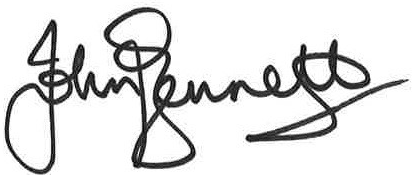 John Bennett